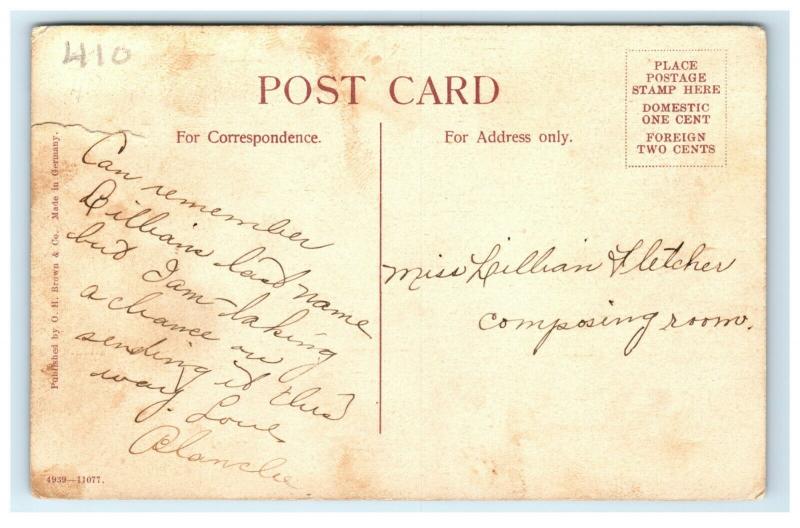 410
POST CARD
PLACE
POSTAGE
STAMP HERE
DOMESTIC
ONE CENT
FOREIGN
TWO CENTS
For Correspondence.
For Address only.
Published by O. H. Brown & Co. Made in Germany.
Can remember
Lillians last name
but I am taking
a chance on
sending it this
way. Love
Blanche
Miss Lillian Fletcher
composing room.
4939—11077.